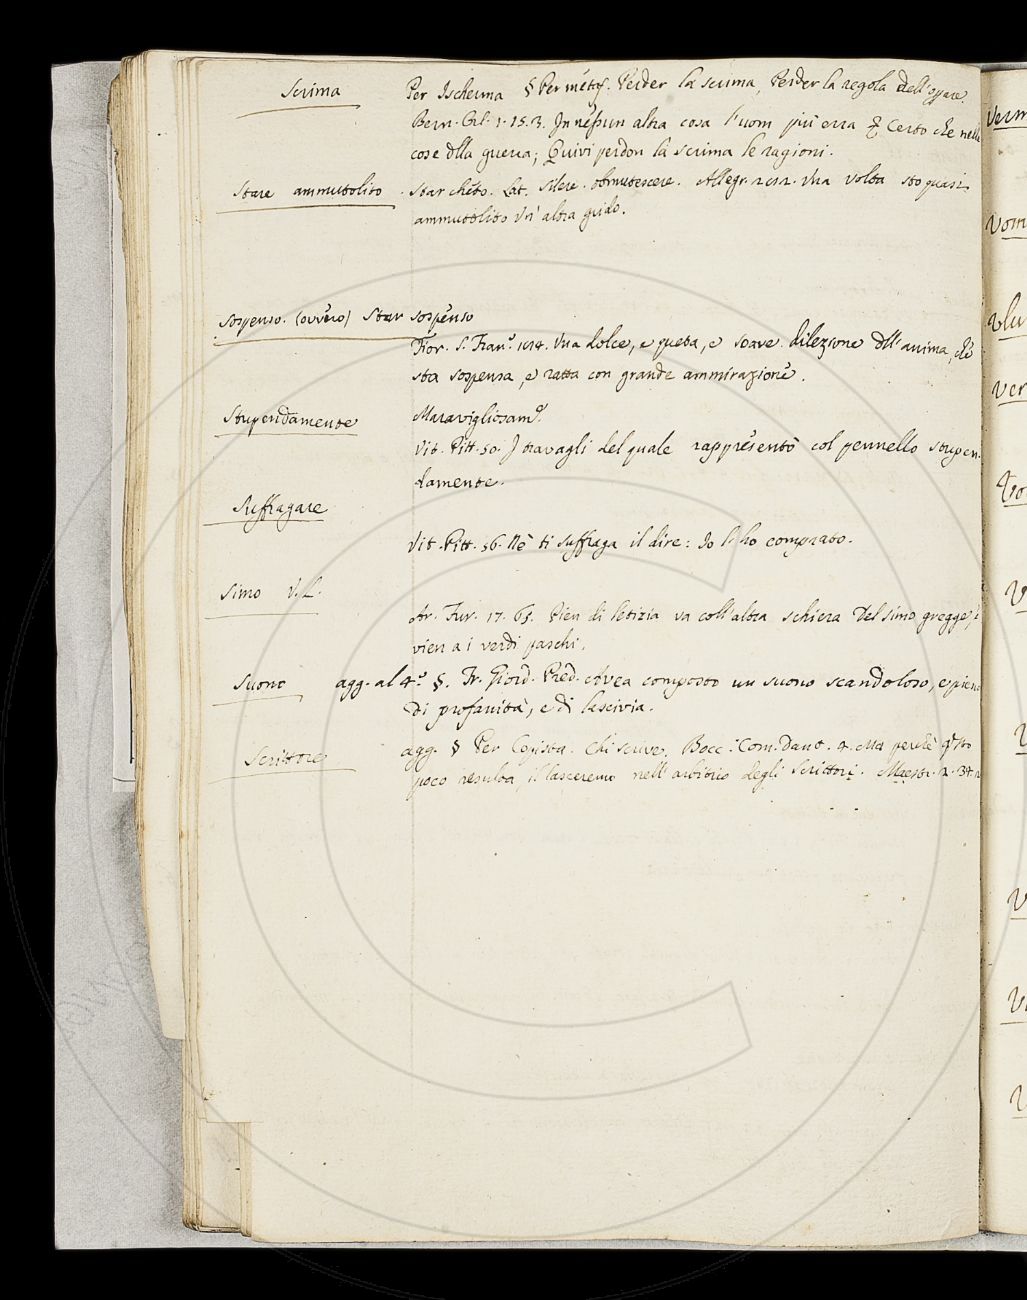 Scrima Per Ischerma § Per metaf. Perder la scrima, Perder la regola dell'oprare.
Bern. Orl. 1. 15. 3. In nessun altra cosa l'uom più erra Certo che nelle
cose dlla guerra; Quivi perdon la scrima le ragioni.
Stare ammutolito. Star cheto. Lat. silere. obmutescere. Allegr. Una volta sto quasi
ammutolito Un' altra grido.
Sospenso. (ovvero) Star sospenso
Fior. S. Fran.º Una dolce, e queta, e soave dilezione dll' anima, che
sta sospensa, e ratta con grande ammirazione.
Stupendamente Maravigliosam.e
Vit. Pitt. 50. I travagli del quale rappresentò col pennello stupen-
damente.
Suffragare
Vit. Pitt. 56. Nè ti suffraga il dire: Io l'ho comprato.
Simo V. L.
Ar. Fur. 17. 65. Pien di letizia va coll'altra schiera Del simo gregge,
vien a i verdi paschi.
Suono agg. al 4.º §. Fr. Giord. Pred. Avea composto un suono scandoloso, e pien
di profanità, e di lascivia.
Scrittore agg. § Per Copista. Chi scrive. Bocc. Com. Dant. 4. Ma perchè
poco resulta, il lasceremo nell' arbitrio degli Scrittori. Maestr. 2. 34.
Verm
Vom
Ver